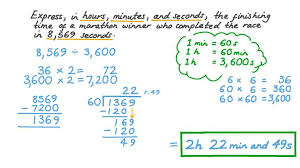 Express, in hours, minutes, and seconds, the finishing
time of a marathon winner who completed the race
in 8,569 seconds.
8,569 ÷ 3,600
36 × 2 = 72
3,600 × 2 = 7,200
8569
-7200
1369
22 r.49
60)1369
-120↓
169
-120
49
1 min = 60s
1 h = 60 min
1 h = 3,600s
6 × 6 = 36
6 × 60 = 360
60 × 60 = 3,600
= 2h 22 min and 49s